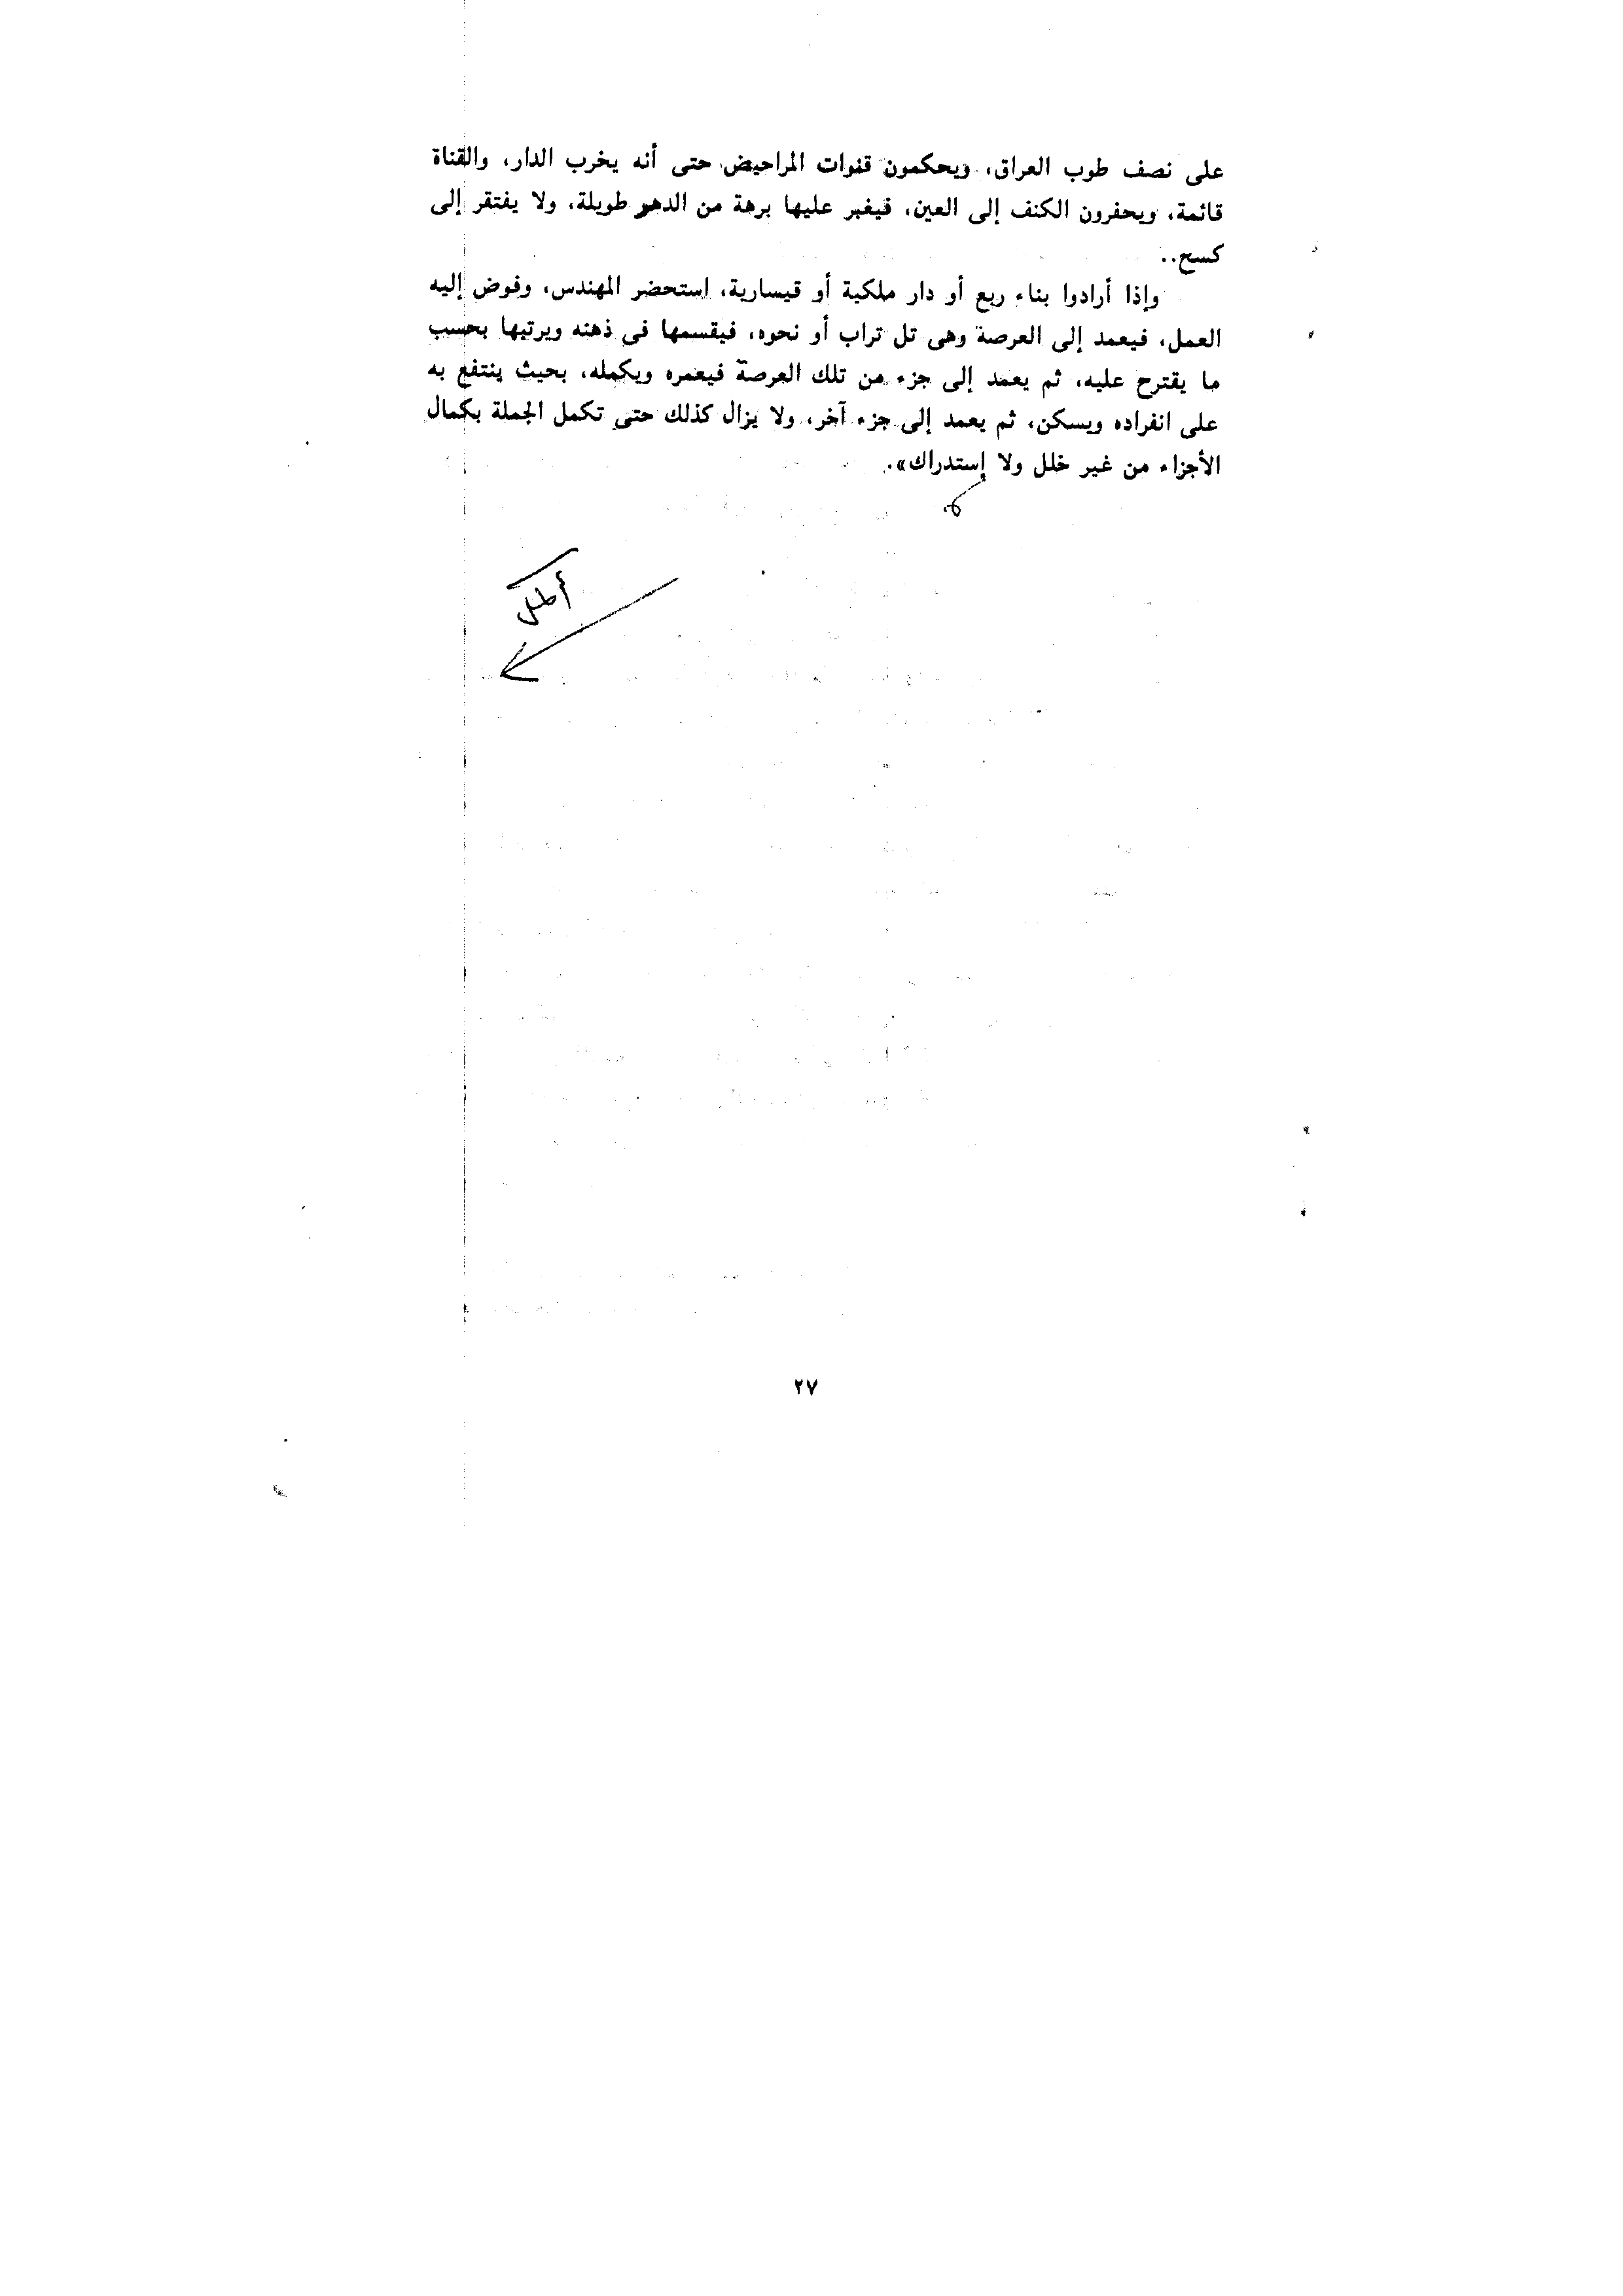 على نصف طوب العراق، ويحكمون قنوات المراحيض حتى أنه يخرب الدار، والقناة
قائمة، ويحفرون الكنف إلى العين، فيغبر عليها برهة من الدهر طويلة، ولا يفتقر إلى
كسح..
وإذا أرادوا بناء ربع أو دار ملكية أو قيسارية، إستحضر المهندس، وفوض إليه
العمل، فيعمد إلى العرصة وهى تل تراب أو نحوه، فيقسمها فى ذهنه ويرتبها بحسب
ما يقترح عليه، ثم يعمد إلى جزء من تلك العرصة فيعمره ويكمله، بحيث ينتفع به
على انفراده ويسكن، ثم يعمد إلى جزء آخر، ولا يزال كذلك حتى تكمل الجملة بكمال
الأجزاء من غير خلل ولا إستدراك».
٢٧